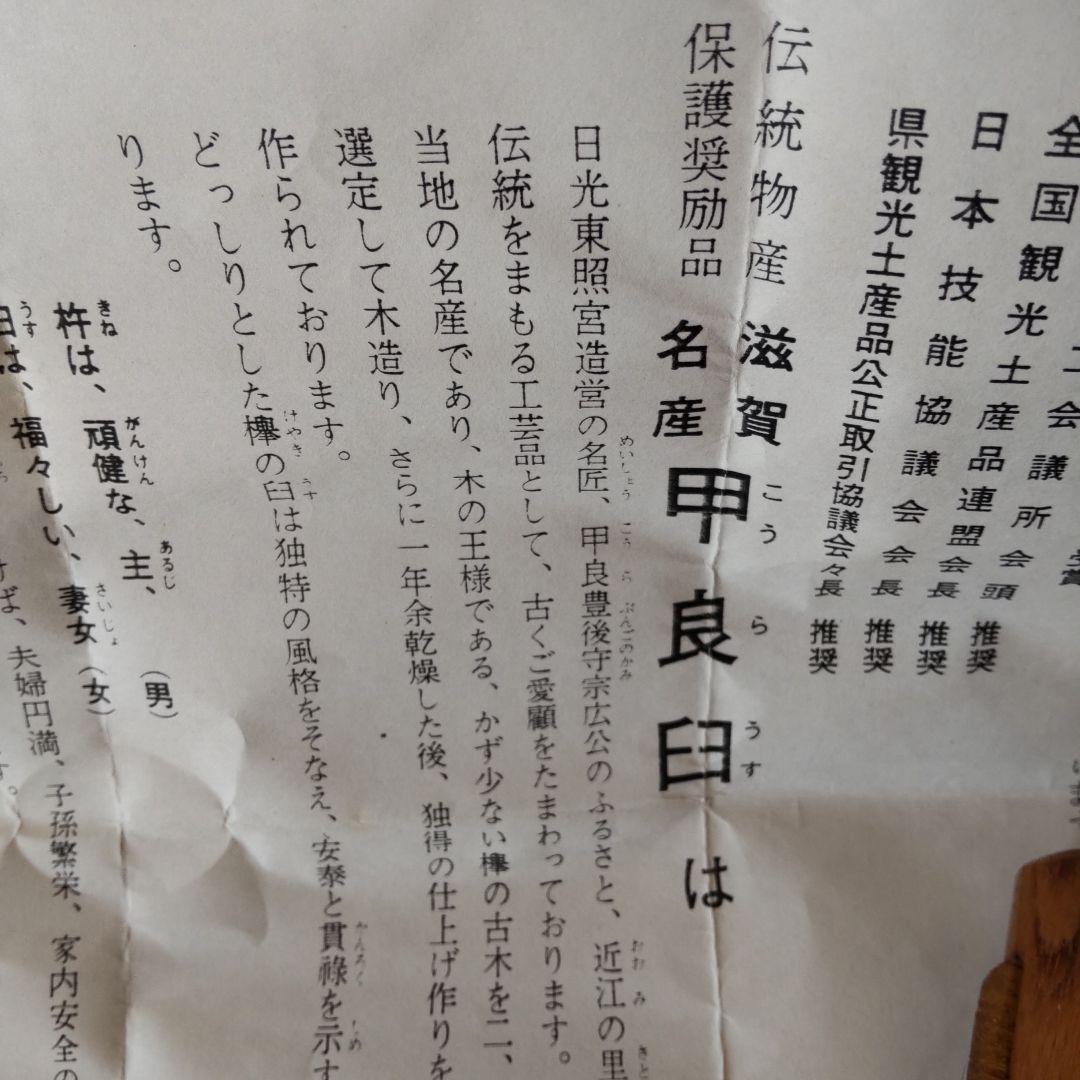 全国観光土産品連盟会長 推奨
日本技能協議会会長 推奨
県観光土産品公正取引協議会々長 推奨
工会議所会頭 推奨
伝統物産 滋賀
保護奨励品 名産 甲良臼は
こうらうす
日光東照宮造営の名匠、甲良豊後守宗広公のふるさと、近江の里
めいしょう こうらぶんごのかみ おおみ さと
伝統をまもる工芸品として、古くご愛顧をたまわっております。
当地の名産であり、木の王様である、かず少ない欅の古木を二、
選定して木造り、さらに一年余乾燥した後、独得の仕上げ作りを
作られております。
どっしりとした欅の臼は独特の風格をそなえ、安泰と貫祿を示す
けやき うす かんろく しめ
ります。
杵は、頑健な、主、(男)
きね がんけん あるじ
臼は、福々しい、妻女(女)
うす さいじょ
ば、夫婦円満、子孫繁栄、家内安全の
す。